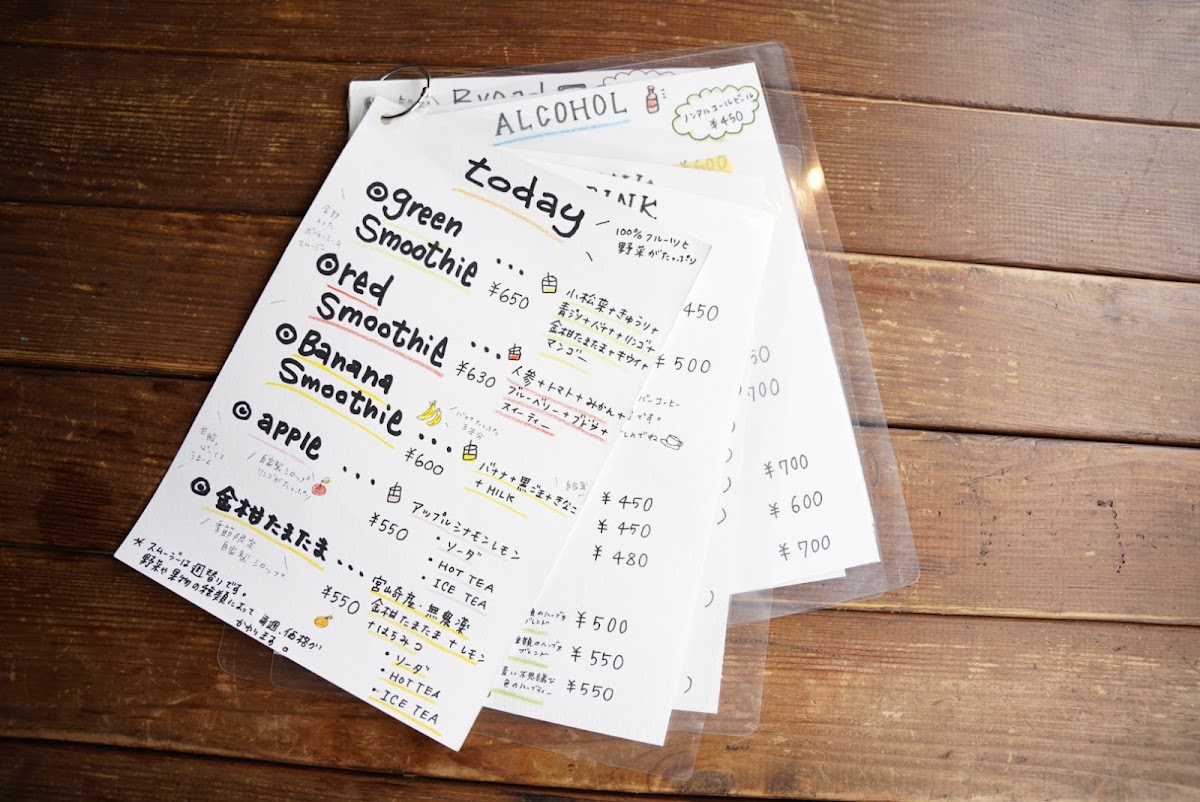 ALCOHOL
ノンアルコールビール
¥450
¥600
today
100%フルーツと
野菜がたっぷり
◎green
Smoothie ...
¥650
小松菜+きゅうり+
青ジソ+バナナ+リンゴ+
金柑たまたま+キウイ+
マンゴー
◎red
Smoothie ...
¥630
人参+トマト+みかん+
ブルーベリー+ブドウ+
スイーティー
◎Banana
Smoothie ...
¥600
バナナ+黒ごま+きなこ
+MILK
◎apple ...
自家製シロップ
リンゴがたっぷり
¥550
アップルシナモンレモン
・ソーダ
・HOT TEA
・ICE TEA
◎金柑たまたま...
季節限定
自家製シロップ
¥550
宮崎産・無農薬
金柑たまたま+レモン
+はちみつ
・ソーダ
・HOT TEA
・ICE TEA
*スムージーは週替りです。
野菜や果物の種類によって毎週、価格が
かわります。
450
¥500
コーヒー
です。
¥450
¥450
¥480
ブレンド
¥500
ブレンド
¥550
青い不思議な
色のハーブティー
¥550
50
700
¥700
¥600
¥700